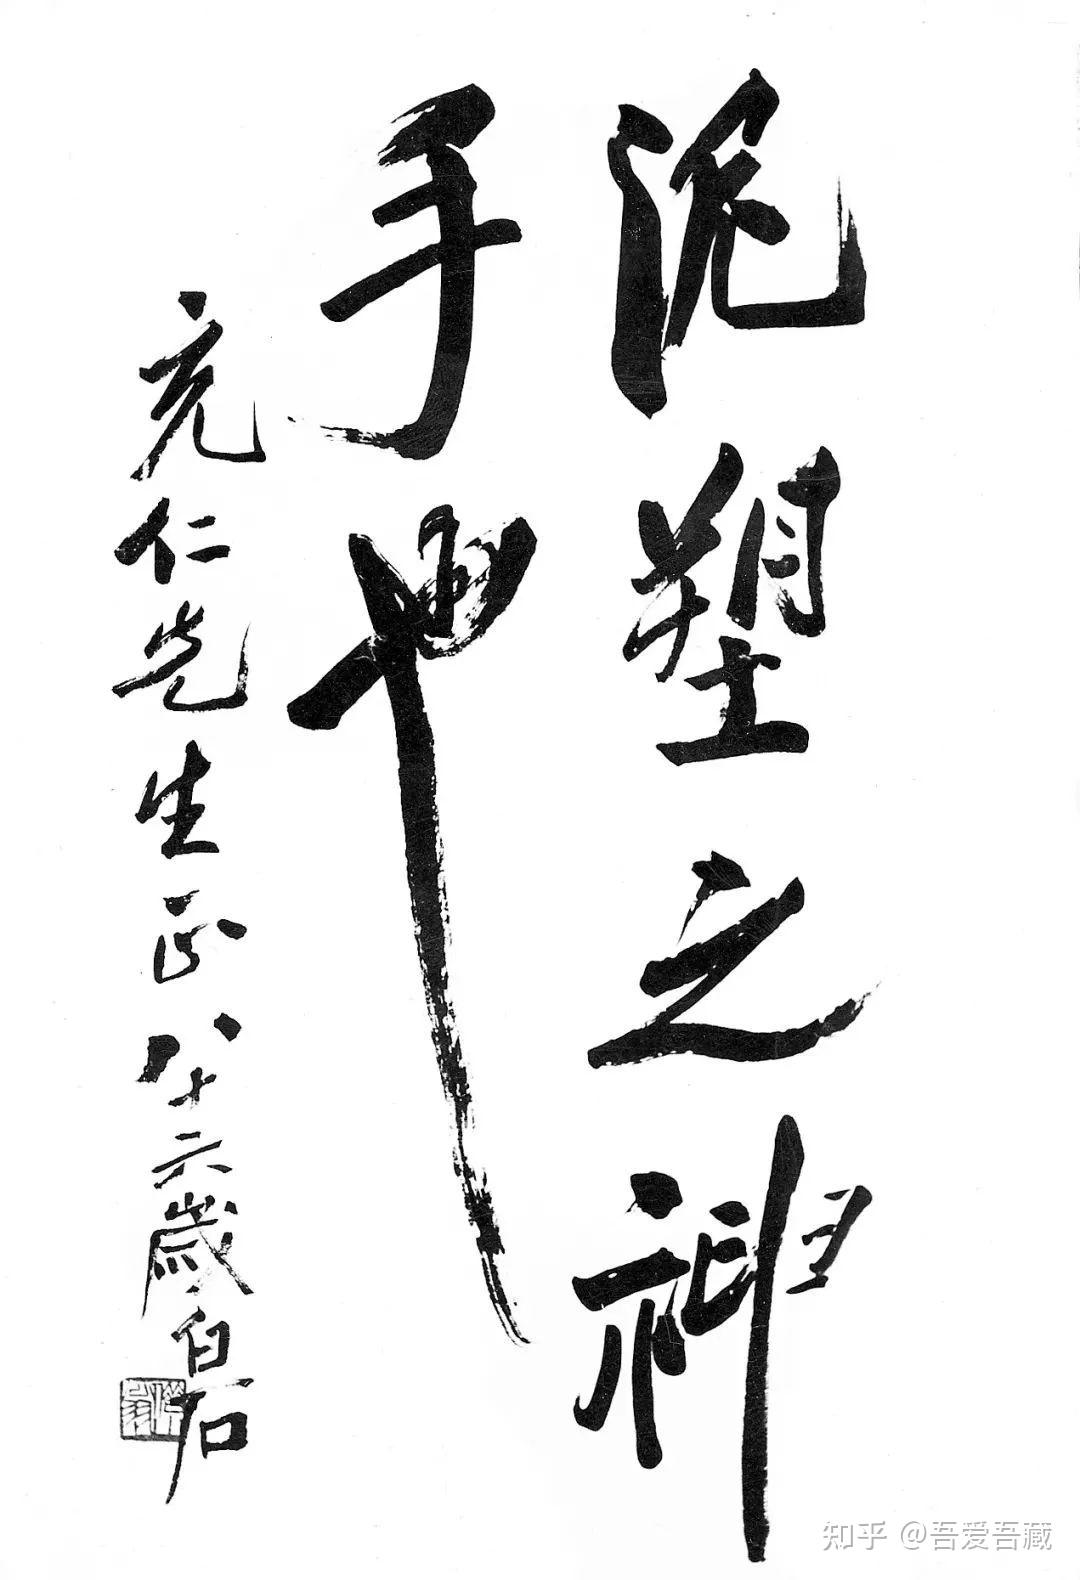 泥塑之神
手也
充仁先生正八十六歲白石
知乎 @吾爱吾藏